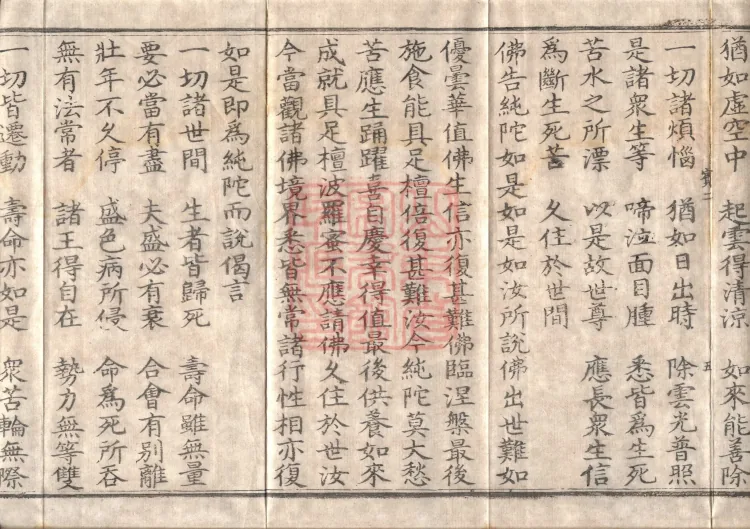 猶如虛空中　起雲得清涼　如來能善除
寶二　五
一切諸煩惱　猶如日出時　除雲光普照
是諸衆生等　啼泣面目腫　悉皆爲生死
苦水之所漂　以是故世尊　應長衆生信
爲斷生死苦　久住於世間
佛告純陀如是如是如汝所說佛出世難如
優曇華值佛生信亦復甚難佛臨涅槃最後
施食能具足檀倍復甚難汝今純陀莫大愁
苦應生踊躍喜自慶幸得值最後供養如來
成就具足檀波羅蜜不應請佛久住於世汝
今當觀諸佛境界悉皆無常諸行性相亦復
如是即爲純陀而說偈言
一切諸世間　生者皆歸死　壽命雖無量
要必當有盡　夫盛必有衰　合會有別離
壯年不久停　盛色病所侵　命爲死所吞
無有法常者　諸王得自在　勢力無等雙
一切皆遷動　壽命亦如是　衆苦輪無際